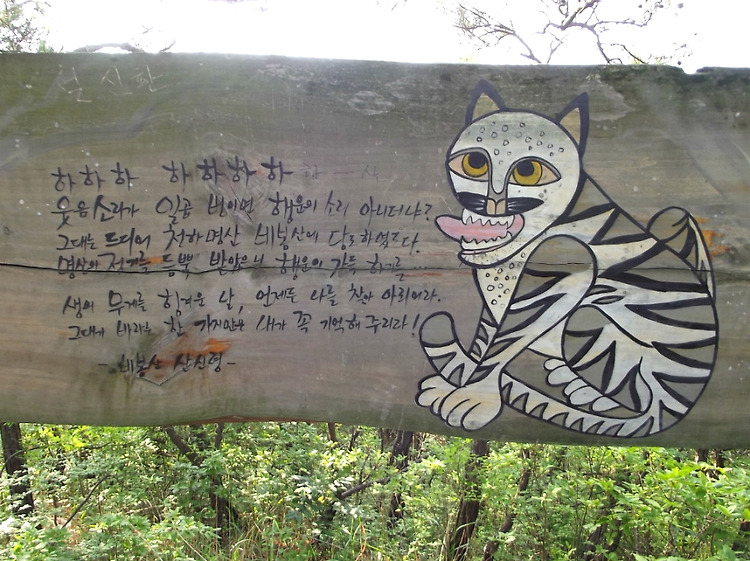 하 하 하   하 하 하 하
웃음소리가 일곱 번이면 행운의 소리 아니더냐?
그대는 드디어 천하명산 비봉산에 당도하였도다.
명산의 정기를 듬뿍 받았으니 행운이 가득 하기를...
생의 무게를 힘겨운 날, 언제든 나를 찾아 아뢰어라.
그대가 바라는 한 가지만은 내가 꼭 기억해 주리라!
- 비봉산 산신령 -